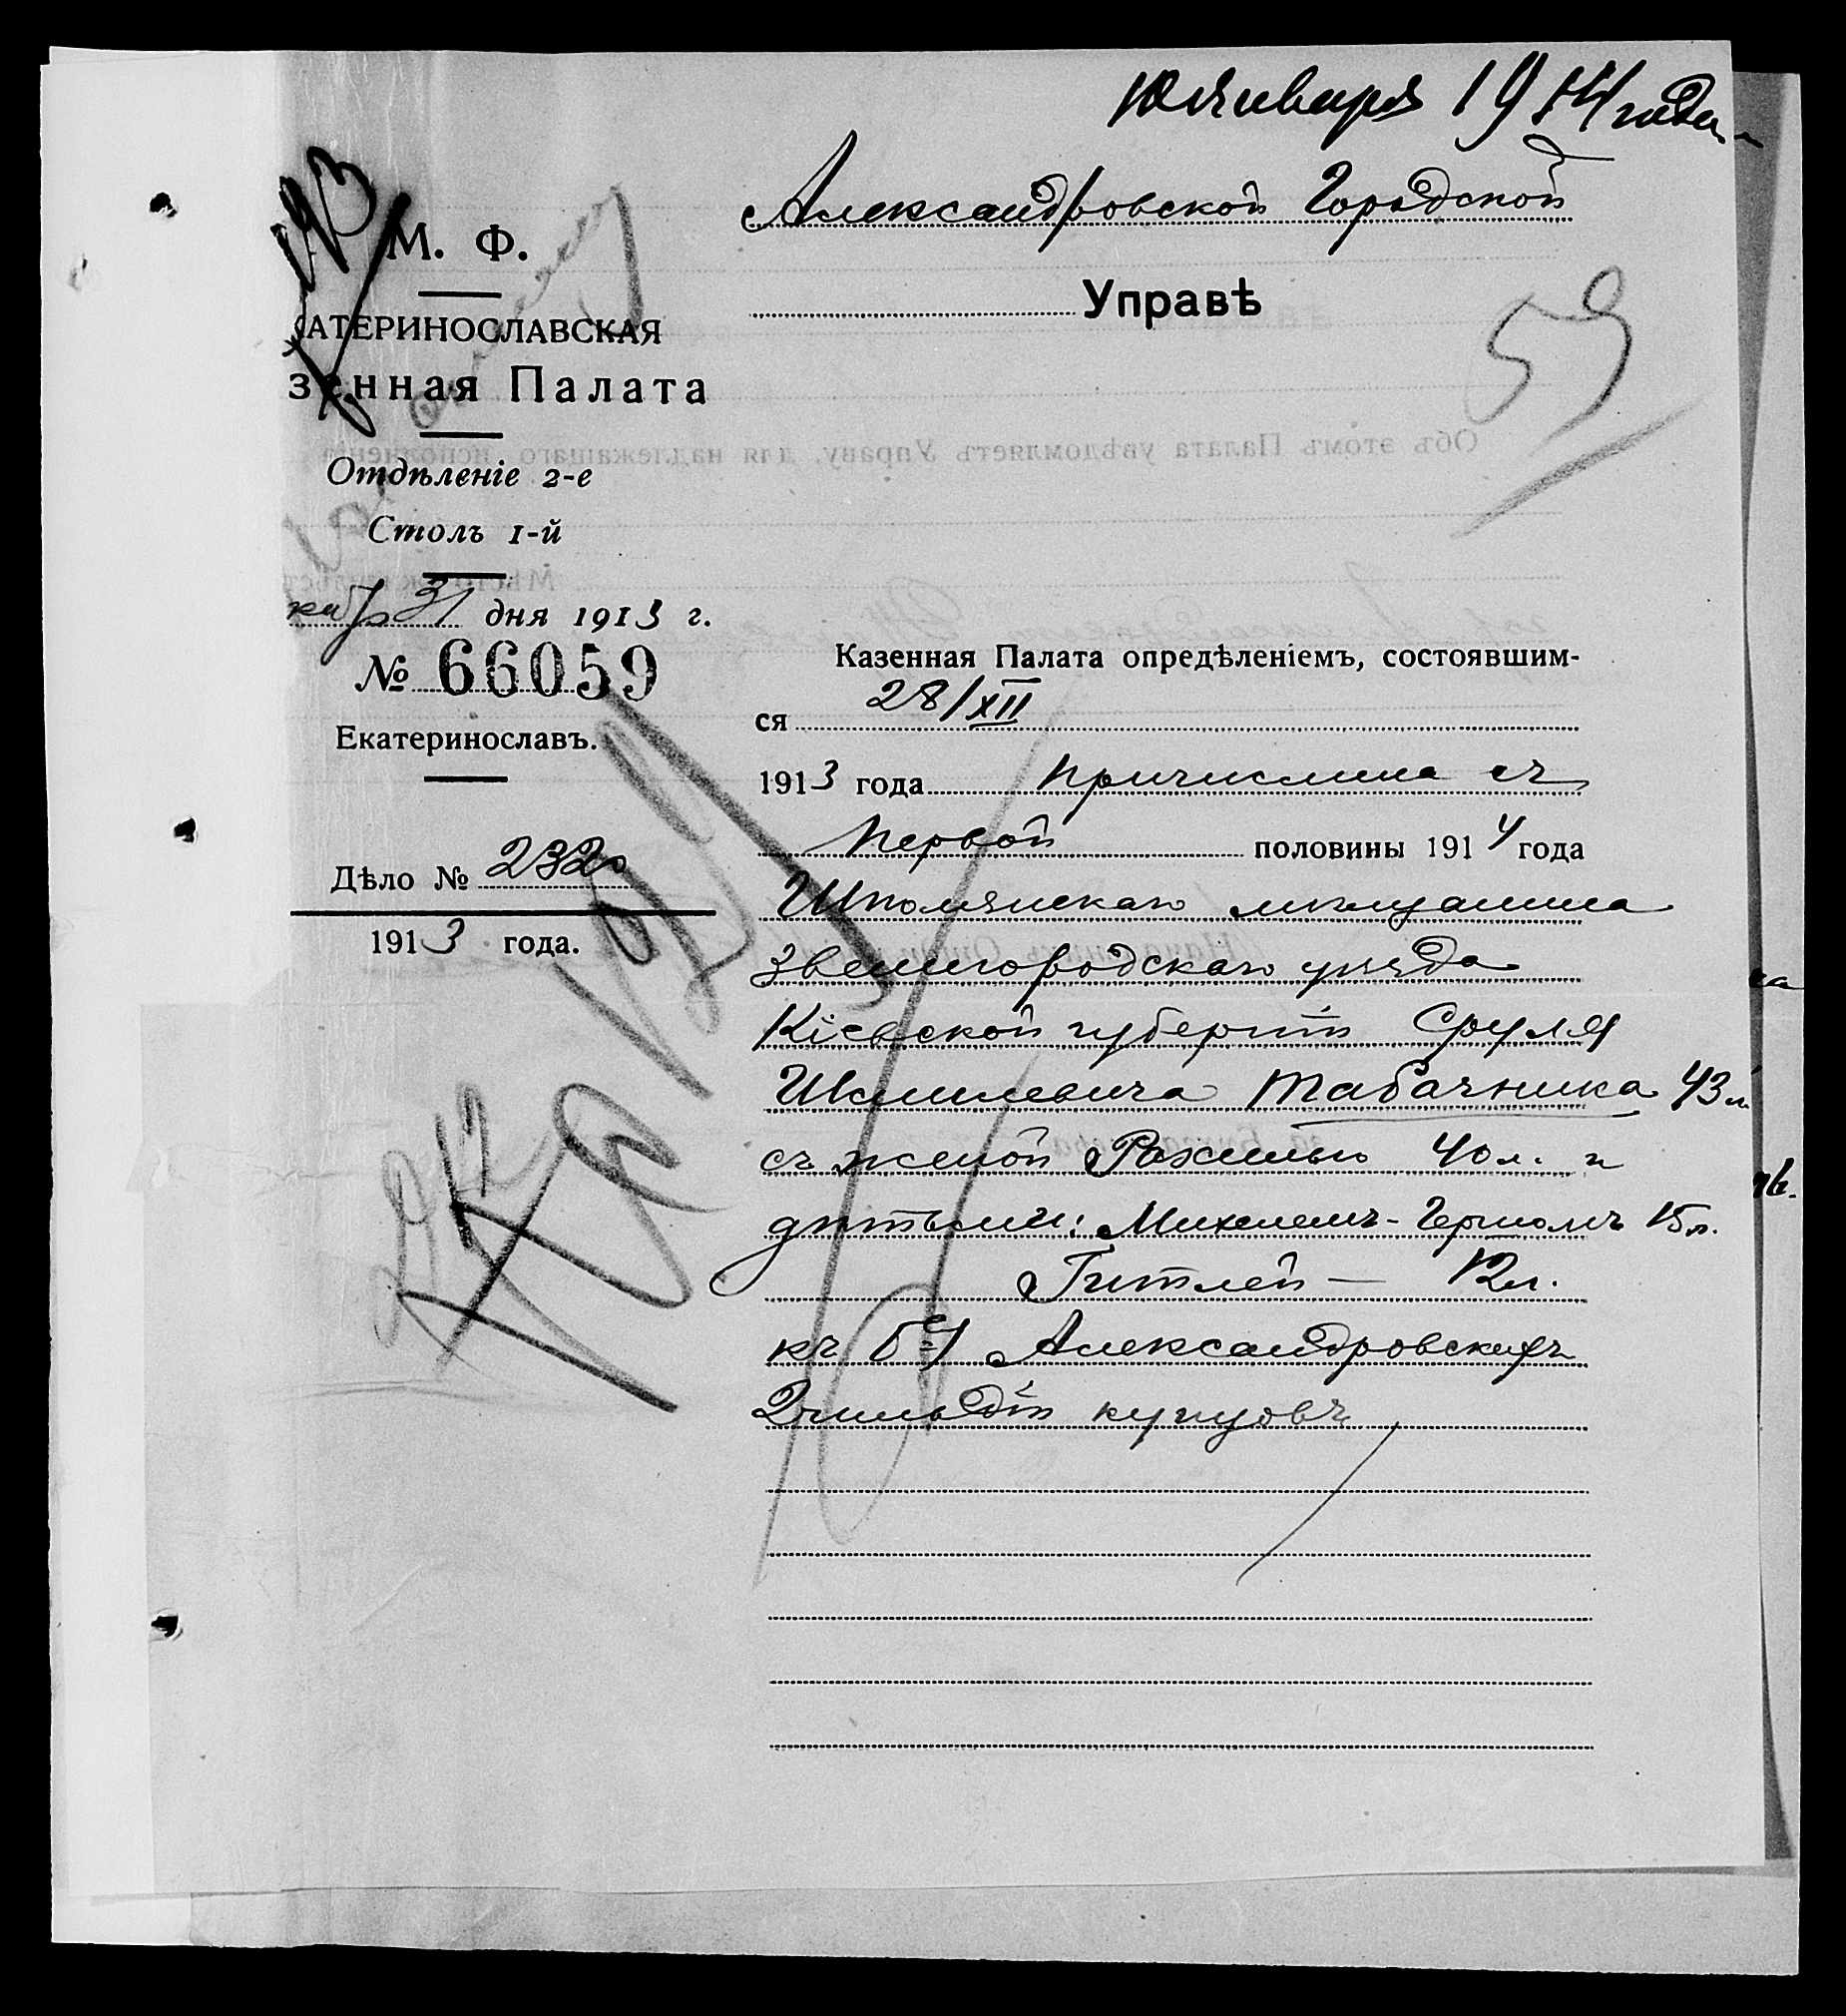 10 января 1914 года
193
М. Ф.
КАТЕРИНОСЛАВСКАЯ
зенная Палата
Отдѣленіе 2-е
Столъ 1-й
каб 31 дня 1913 г.
№ 66059
Екатеринославъ.
Дѣло № 2320
1913 года.
Александровской Городской
Управѣ
59
Казенная Палата опредѣленіемъ, состоявшим-
ся 28/XII
1913 года причислила съ
первой половины 1914 года
Шполянскаго мѣщанина
Звенигородскаго уѣзда
Кіевской губерніи Сруля
Ихилевича Табачника 43 л.
съ женой Рахилью 40 л. и
дѣтьми: Михелемъ-Гершомъ 15 л.
Гитлей — 12 л.
къ Александровскихъ
2 гильдіи купцовъ